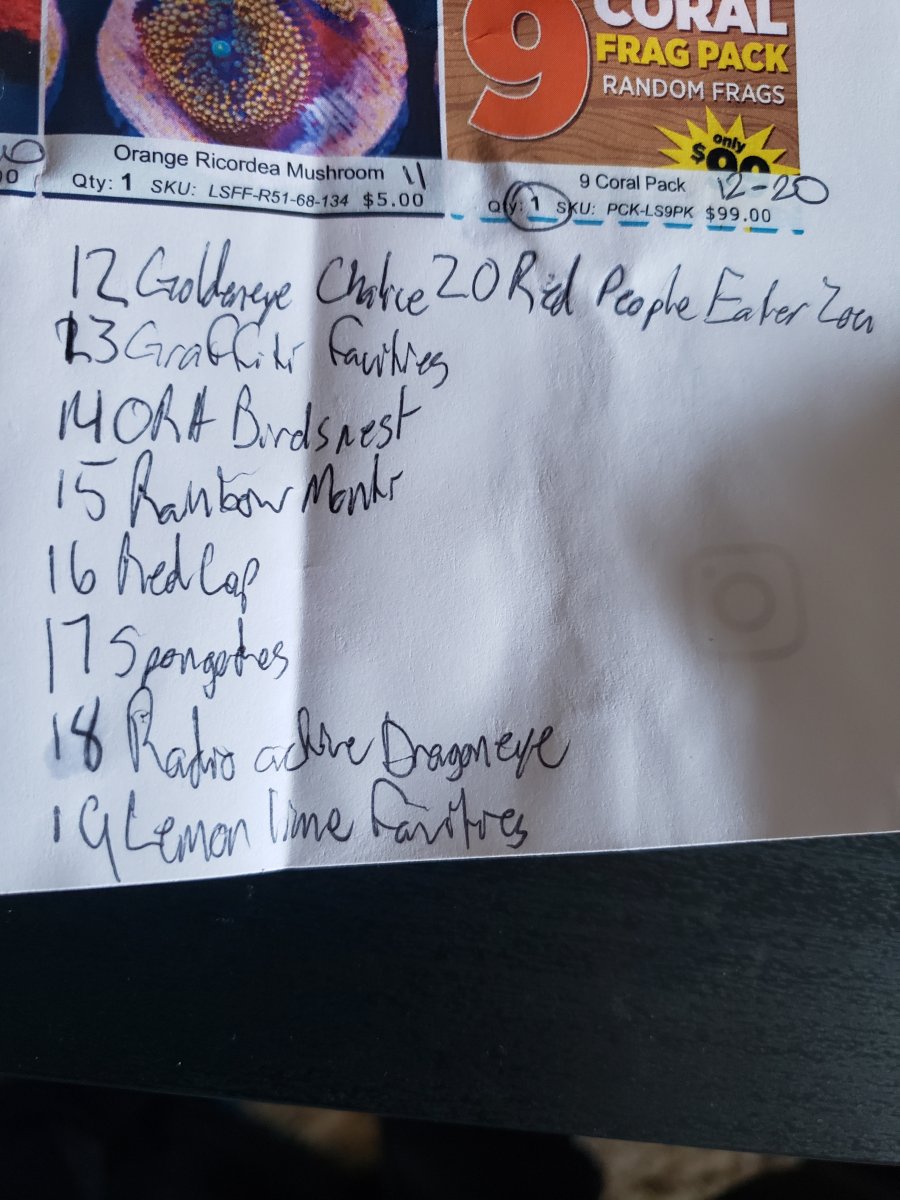 CORAL
9 FRAG PACK
RANDOM FRAGS
only
$99
Orange Ricordea Mushroom 11
Qty: 1 SKU: LSFF-R51-68-134 $5.00
9 Coral Pack 12-20
Qty: 1 SKU: PCK-LS9PK $99.00
12 Goldeneye Chalice 20 Red People Eater Zoa
13 Graffiti Favities
14 ORA Birdsnest
15 Rainbow Monti
16 Red Cap
17 Spongodes
18 Radio active Dragon eye
19 Lemon lime Favities